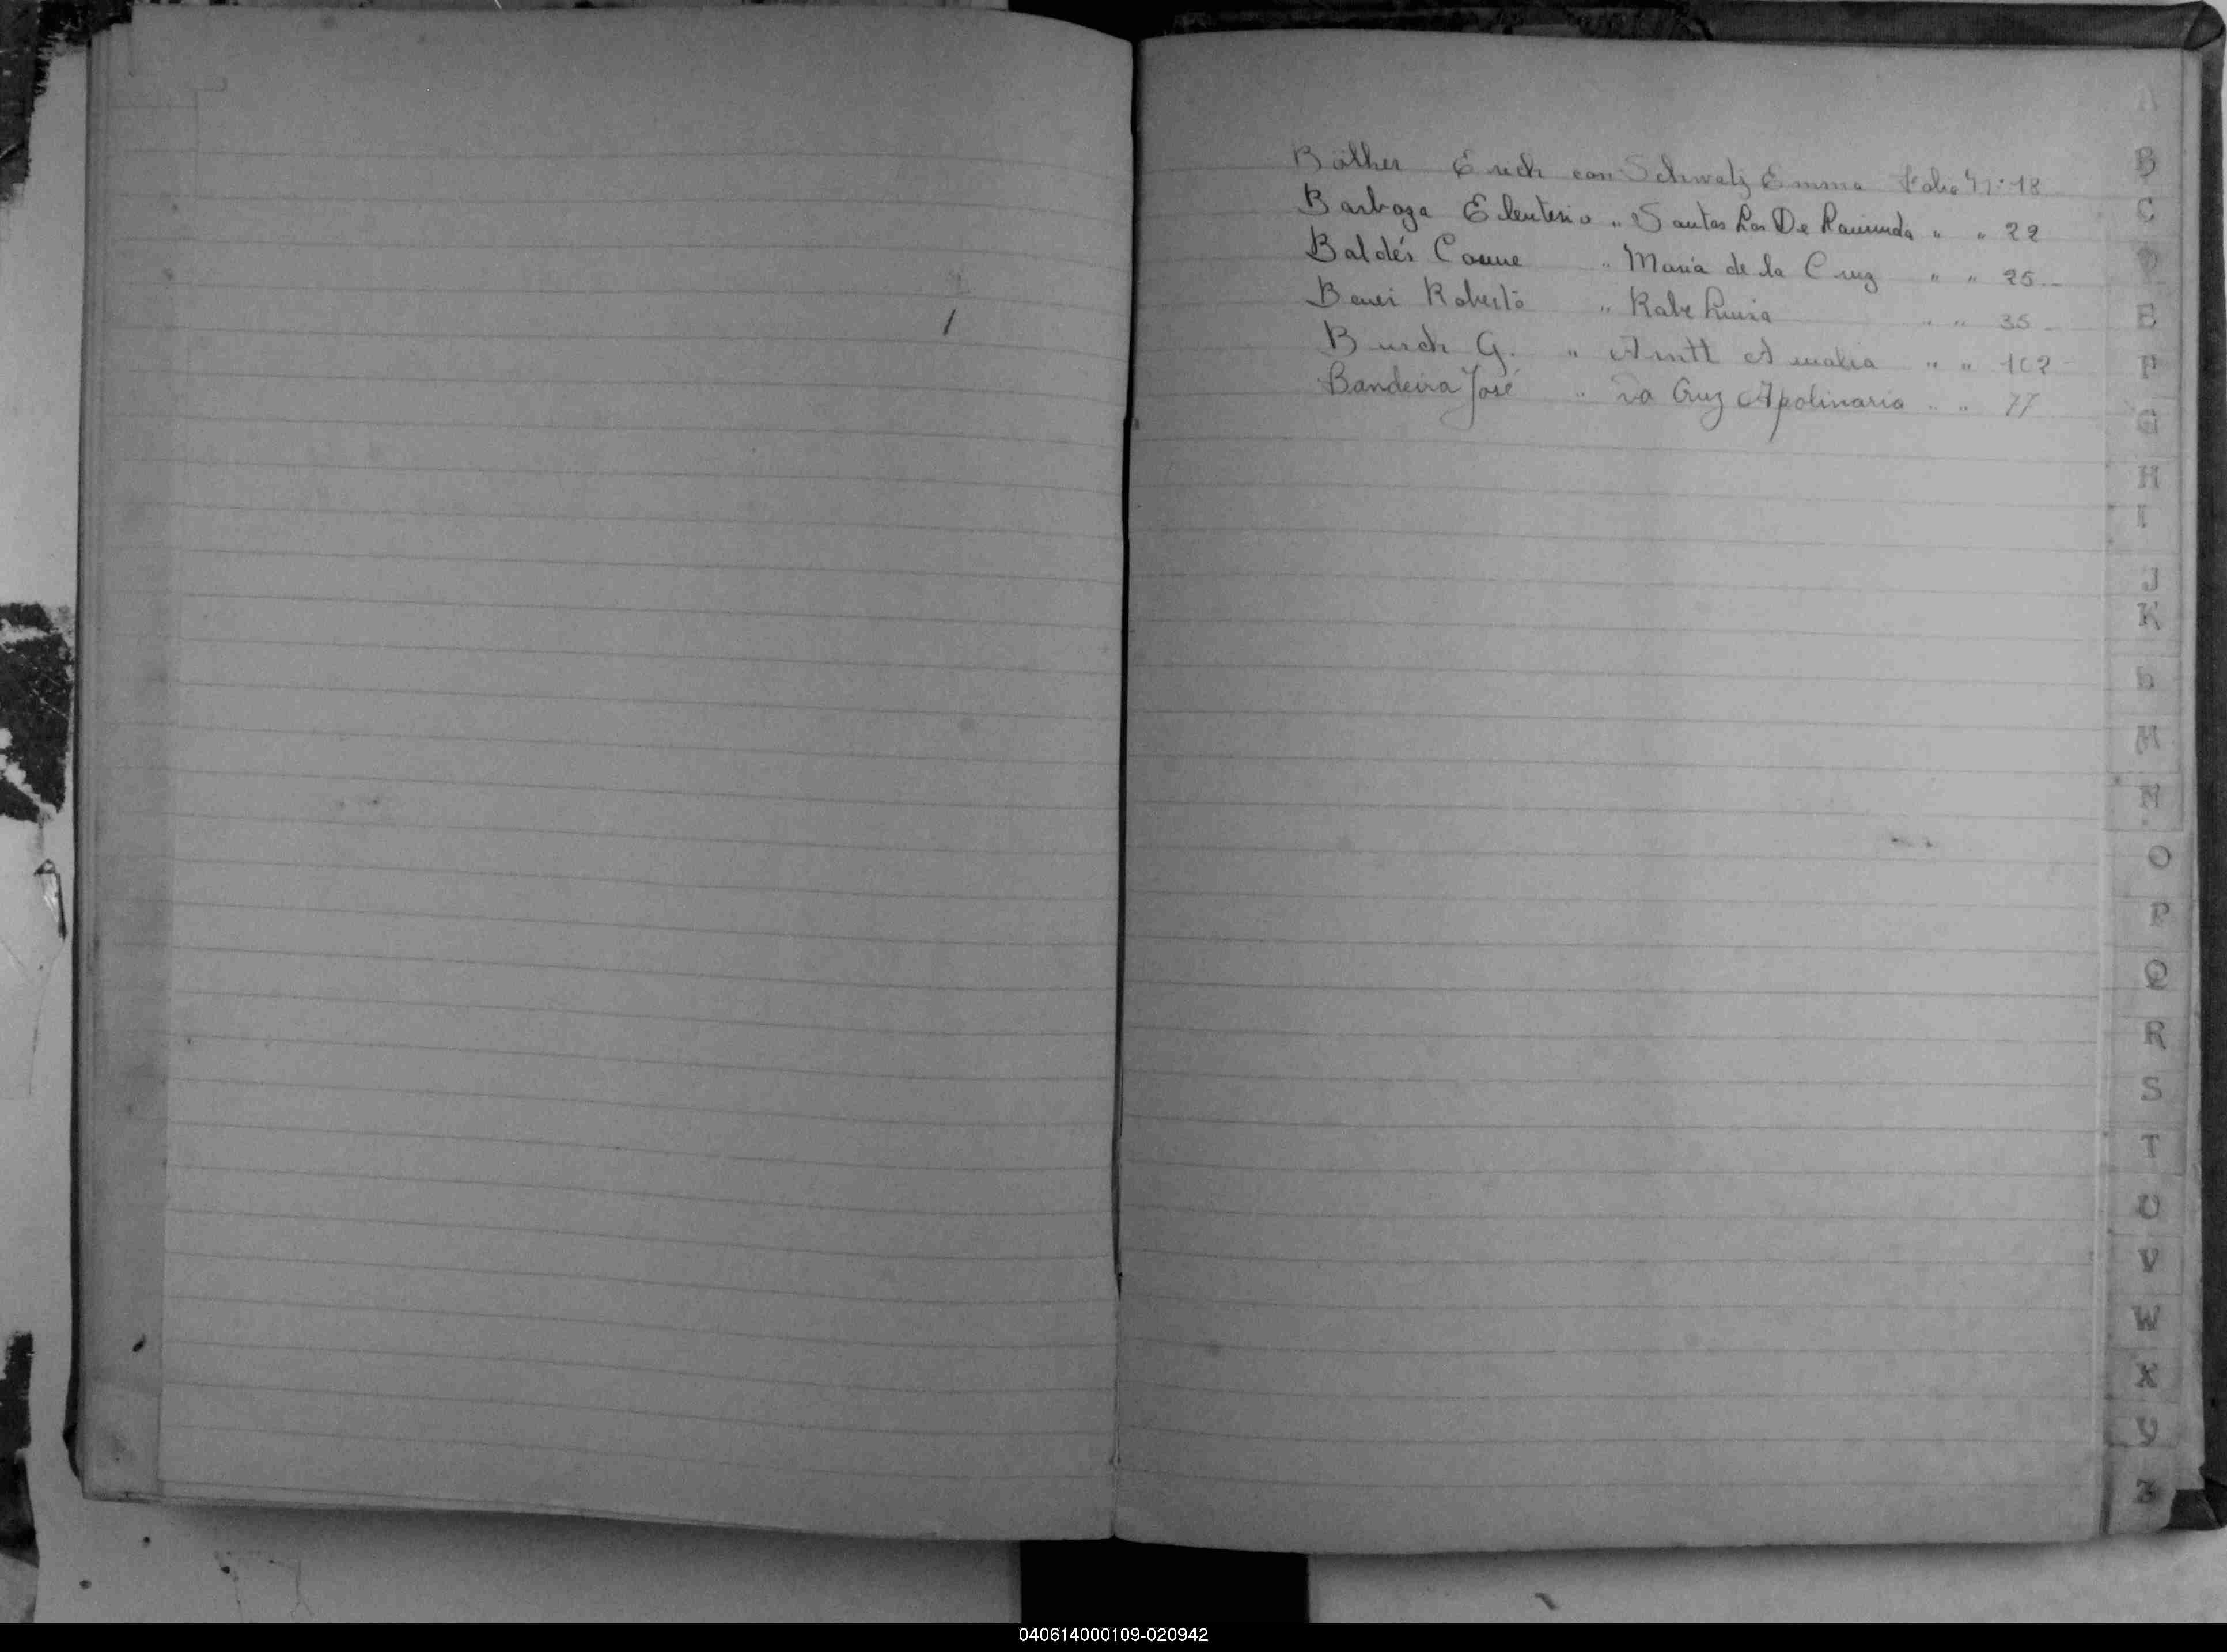 Bölher Erich con Schwalz Emma Folio Nº 18
Barboza Eleuterio " Santos Los De Raimunda " " 22
Baldés Cosme " Maria de la Cruz " " 25
Roberto " Rabe Luisa " " 35
Busch G. " Arntt Amalia " " 102
Bandeira José " Da Cruz Apolinaria " " 77
A
B
C
D
E
F
G
H
I
J
K
L
M
N
O
P
Q
R
S
T
U
V
W
X
Y
Z
040614000109-020942